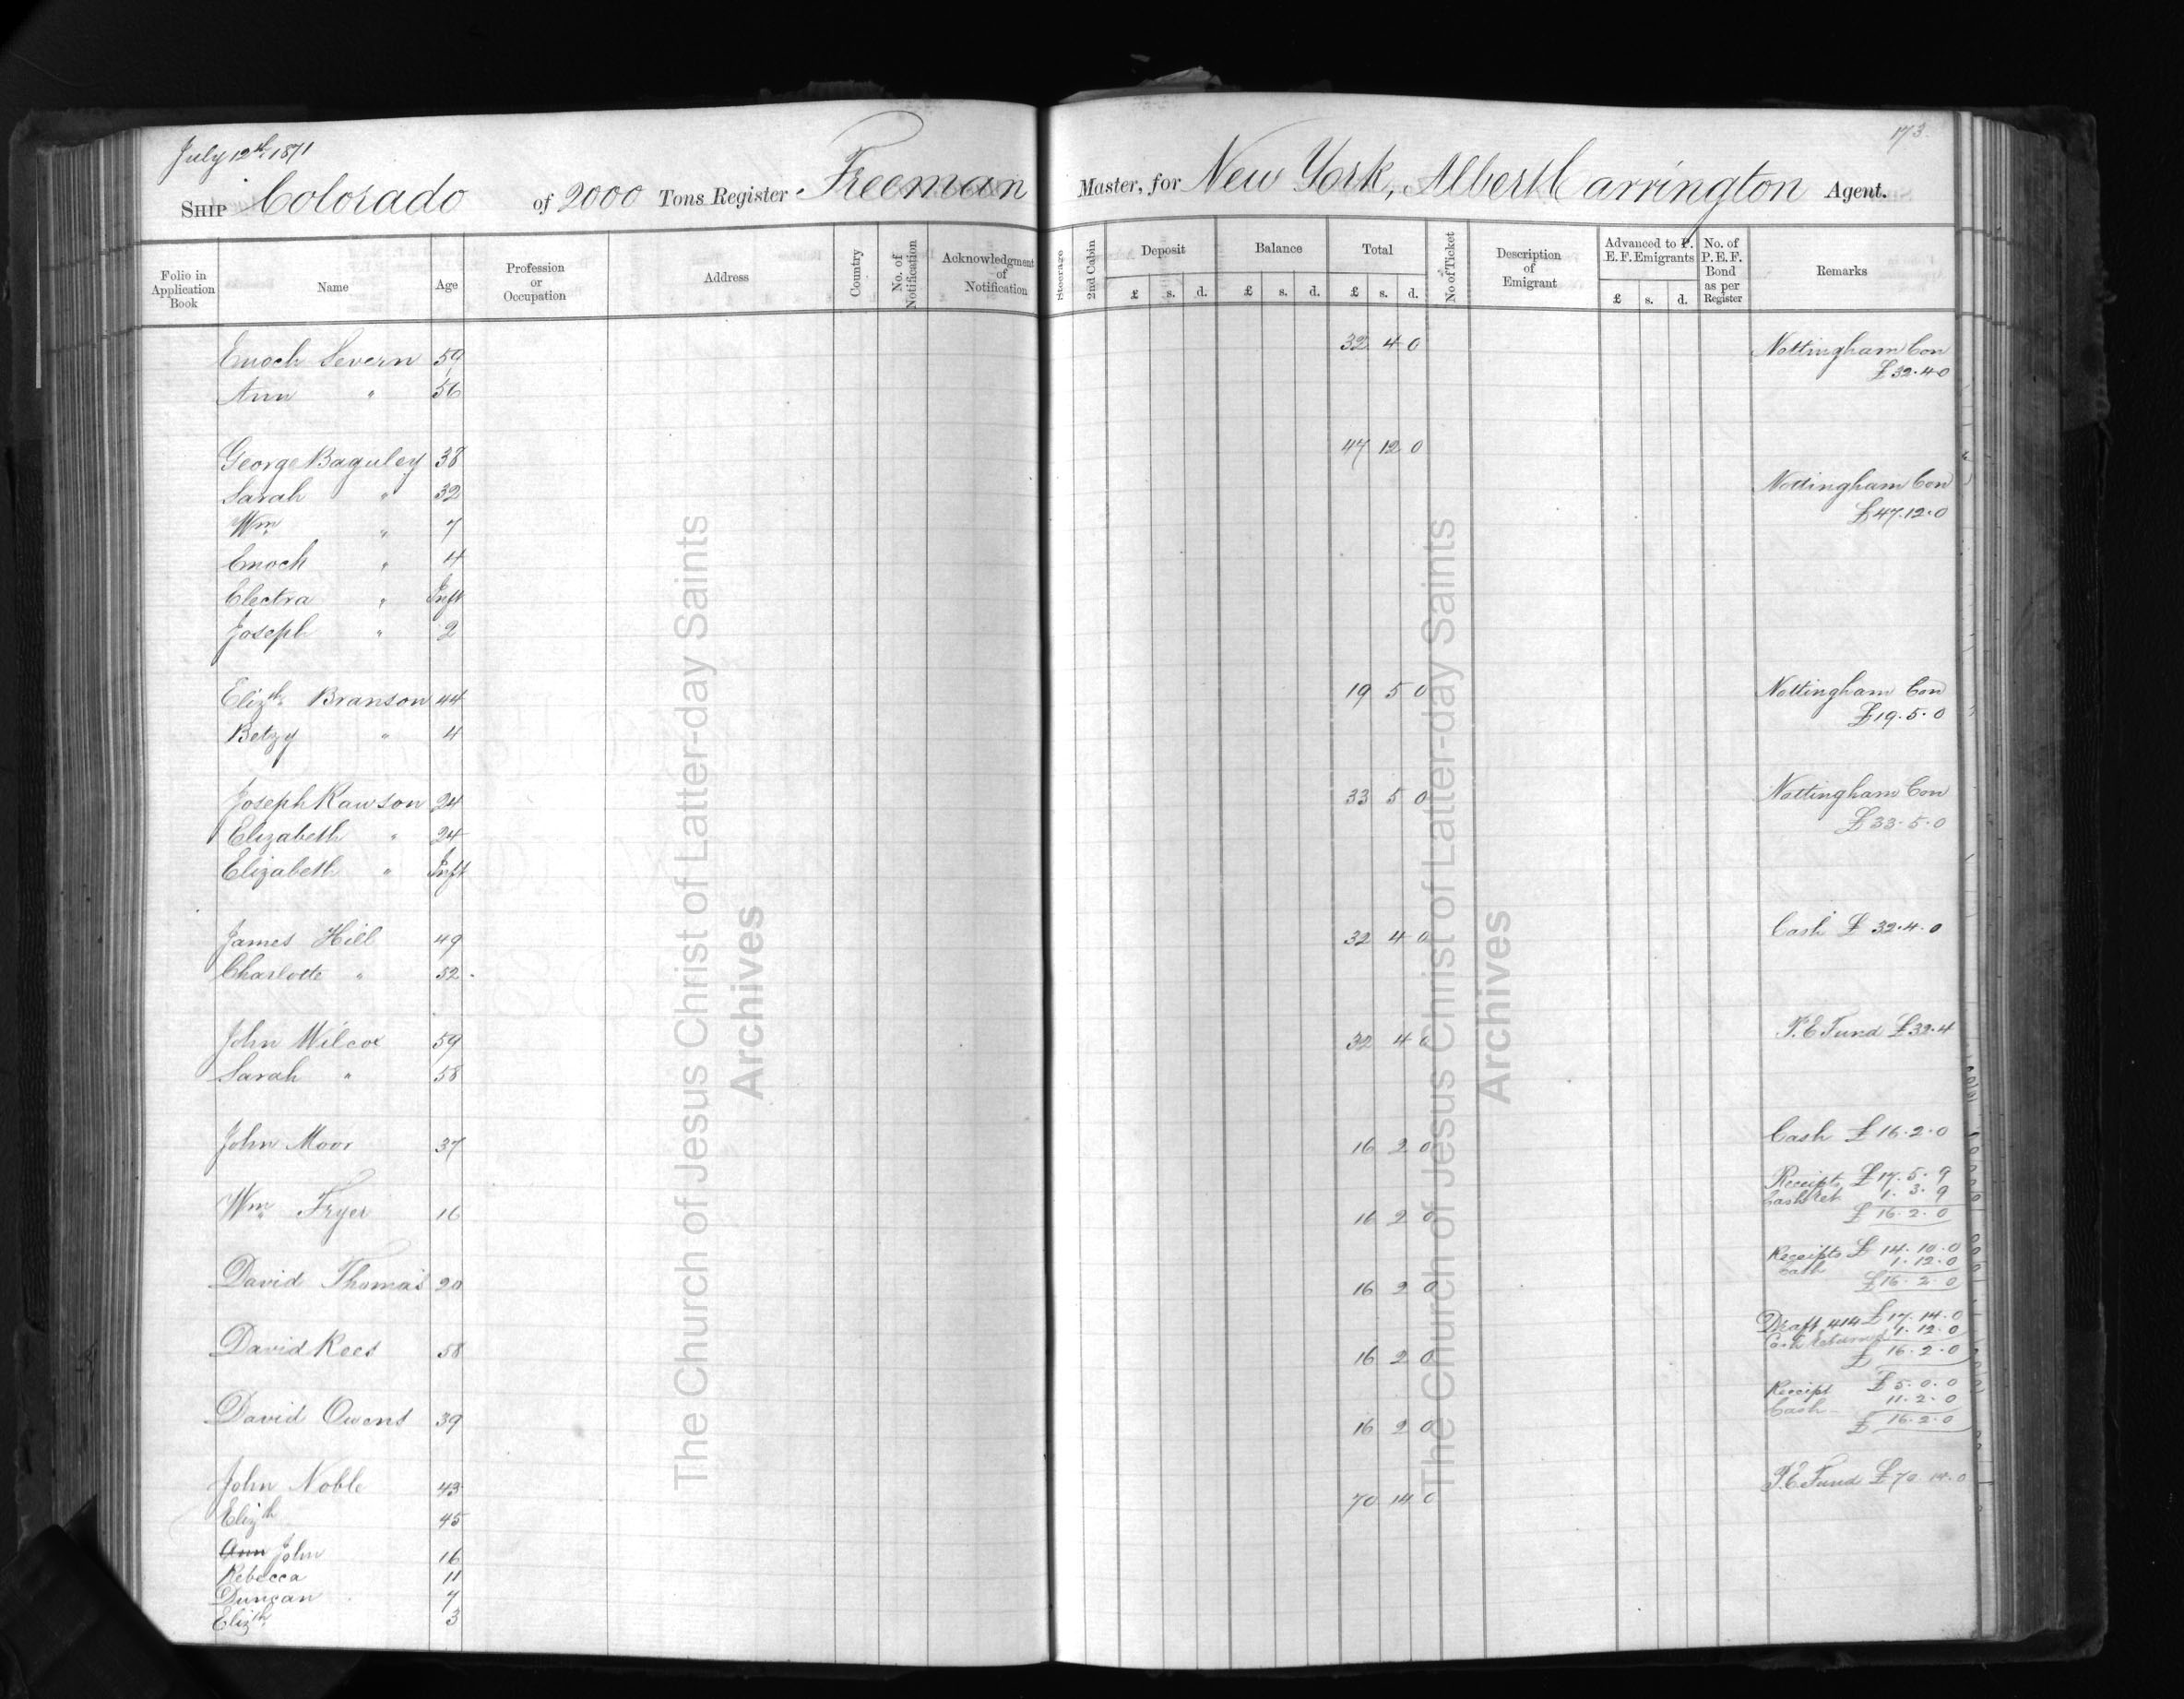 173
July 12th 1871
SHIP Colorado of 2000 Tons Register Freeman Master, for New York, Albert Carrington Agent.
Folio in Application Book Name Age Profession or Occupation Address Country No. of Notification Acknowledgment of Notification Steerage 2nd Cabin Deposit Balance Total No of Ticket Description of Emigrant Advanced to P. E. F. Emigrants No. of P. E. F. Bond as per Register Remarks
£ s. d. £ s. d. £ s. d. £ s. d.
Enoch Severn 59 32 4 0 Nottingham Con
£32.4.0
Ann " 56
George Baguley 38 47 12 0
Sarah " 32 Nottingham Con
Wm " 7 £47.12.0
Enoch " 4
Electra " Inft
Joseph " 2
Elizth Branson 44 19 5 0 Nottingham Con
£19.5.0
Betzy " 4
Joseph Rawson 24 33 5 0 Nottingham Con
£33.5.0
Elizabeth " 24
Elizabeth " Inft
James Hill 49 32 4 0 Cash £32.4.0
Charlotte " 52
John Wilcox 59 32 4 0 P.E Fund £32.4
Sarah " 58
John Moor 37 16 2 0 Cash £16.2.0
Receipts £17.5.9
Cash Ret 1.3.9
Wm Fryer 16 16 2 0 £16.2.0
Receipts £14.10.0
Cash 1.12.0
David Thomas 20 16 2 0 £16.2.0
Draft 414 £17.14.0
Cash Returned 1.12.0
David Rees 58 16 2 0 £16.2.0
Receipt £5.0.0
Cash 11.2.0
David Owens 39 16 2 0 £16.2.0
John Noble 43 70 14 0 P.E Fund £70.14.0
Elizth 45
Ann John 16
Rebecca 11
Duncan 7
Elizth 3
The Church of Jesus Christ of Latter-day Saints
Archives
The Church of Jesus Christ of Latter-day Saints
Archives